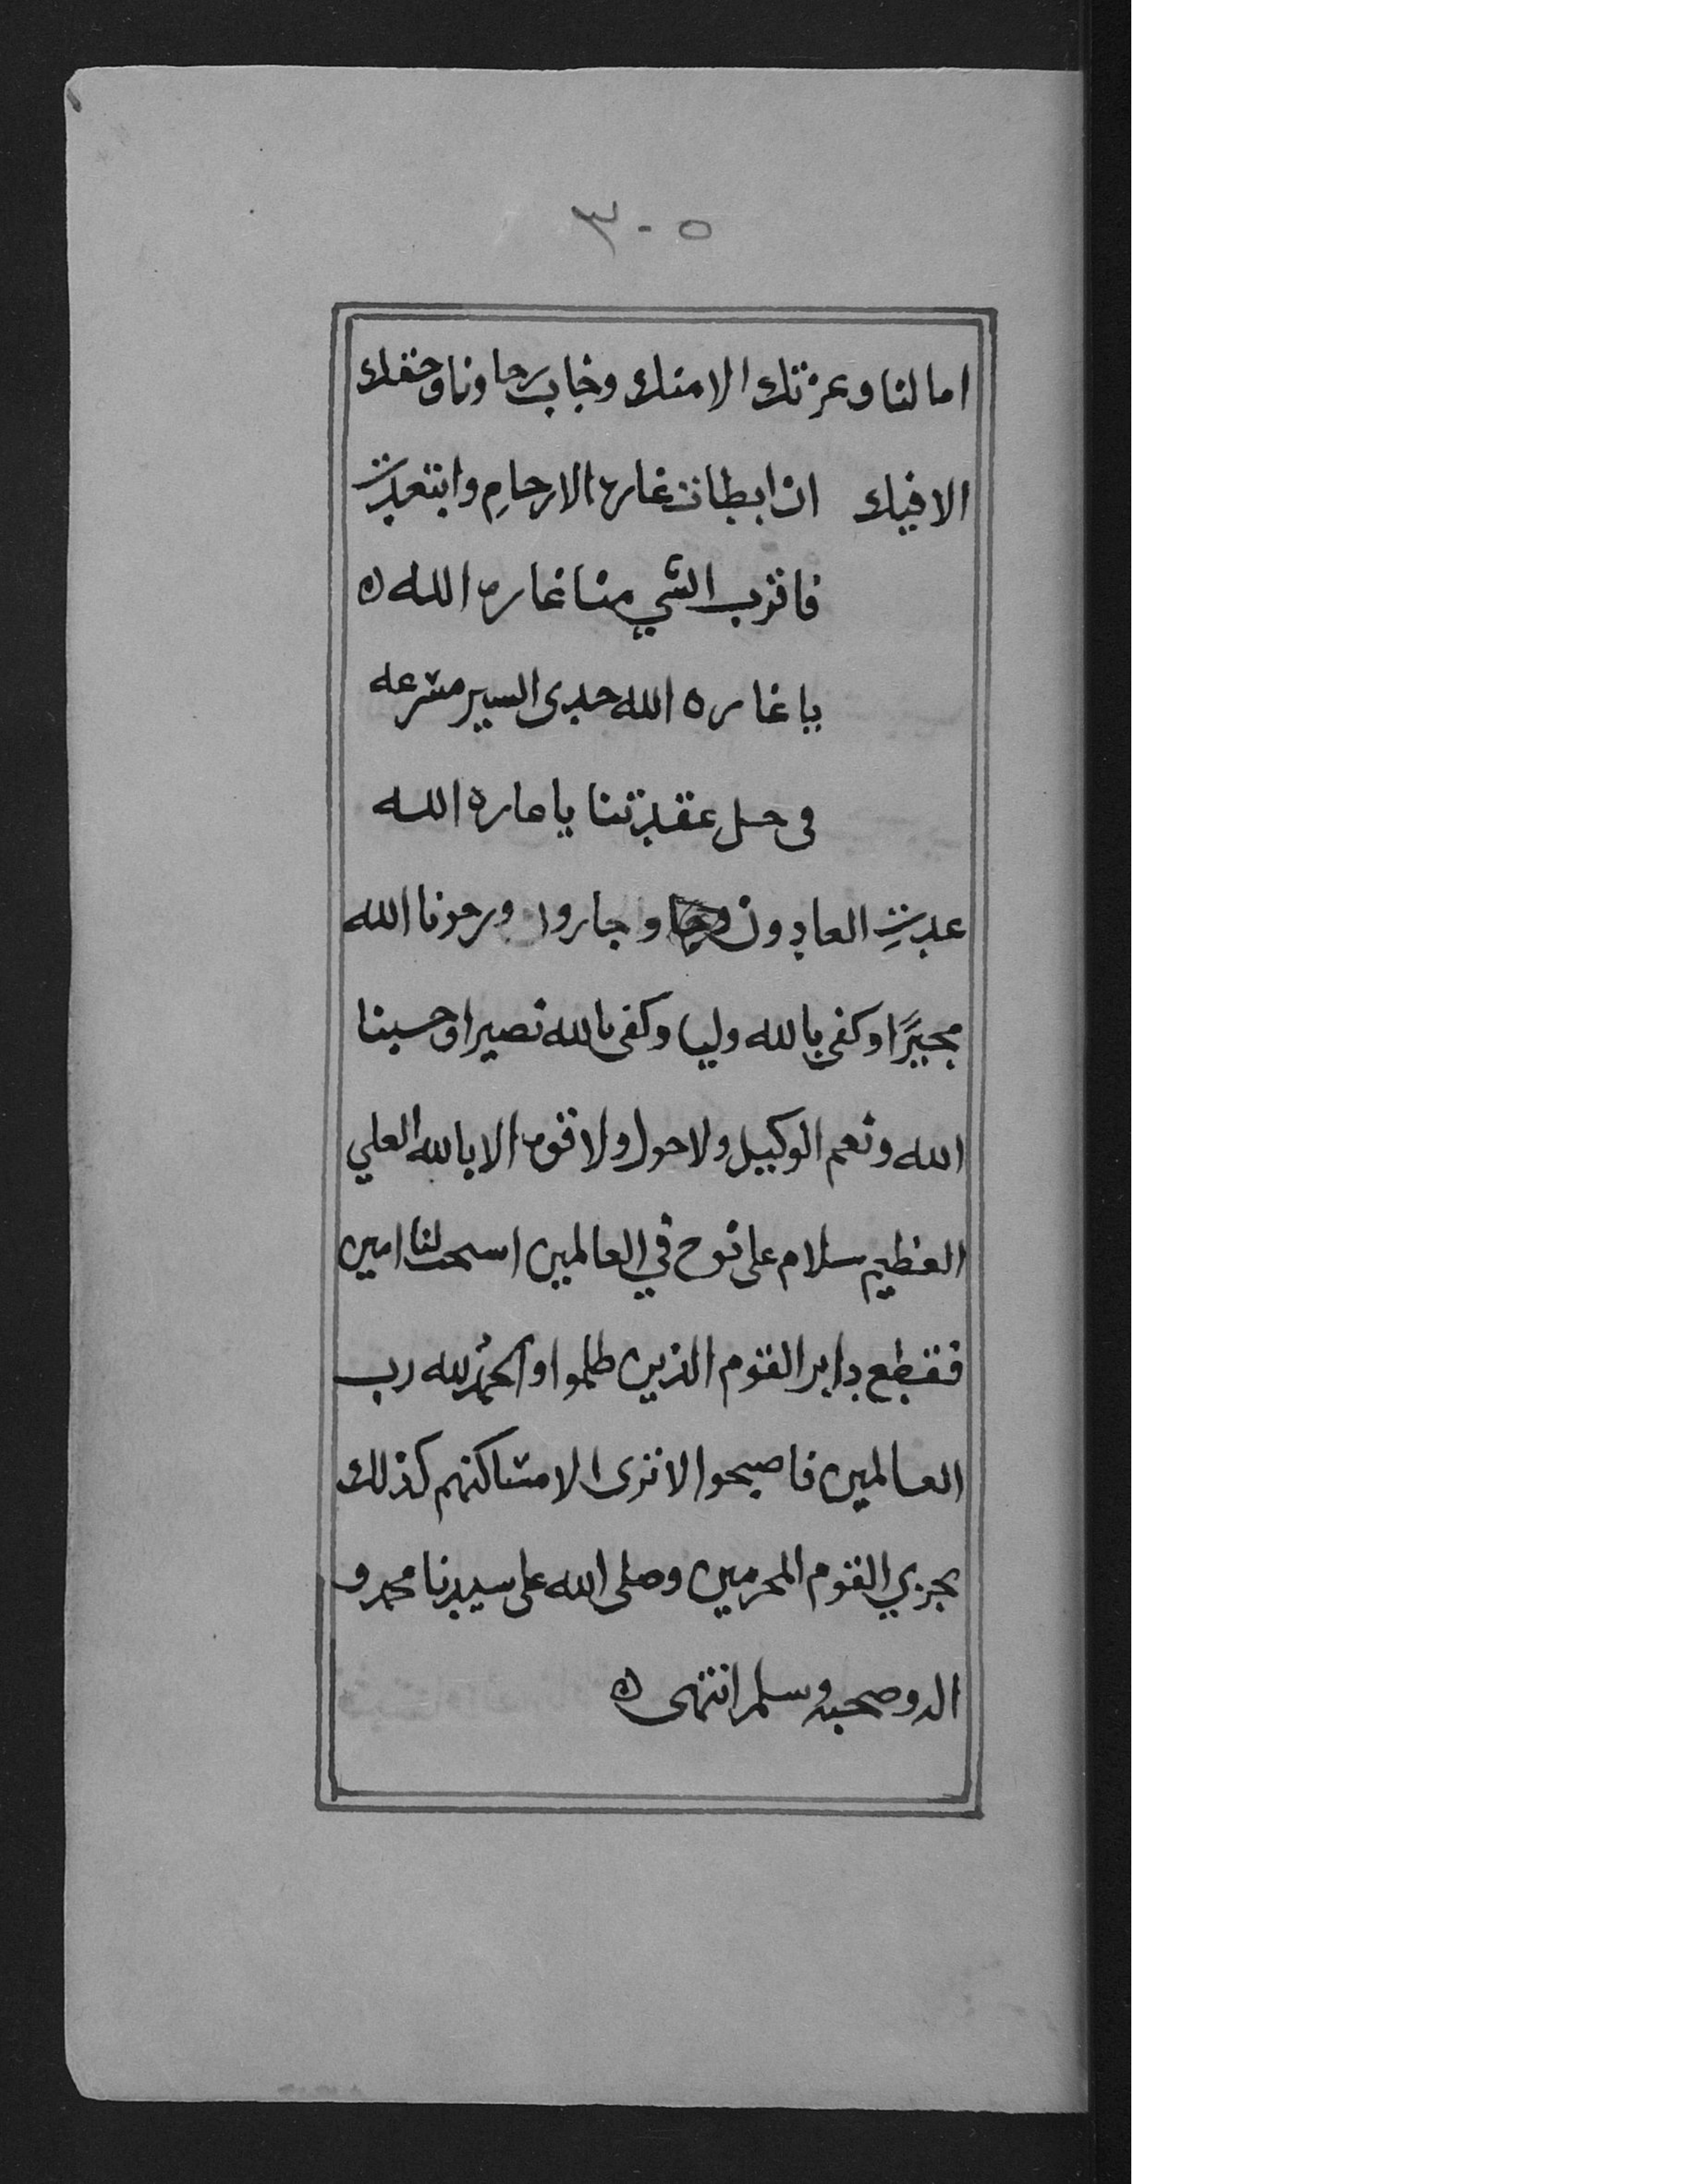 ٣٠٥
امالنا وعزتك الا منك وخاب رجاونا وحقك
الا فيك ان ابطات غارة الارحام وابتعدت
فاقرب الشي منا غارة الله
يا غاره الله جدى السير مشرعه
فى حل عقدتنا يا عاره الله
عدت العادون وجاروا ورجونا الله
مجيرًا وكفى بالله وليا وكفى بالله نصيرا وحسبنا
الله ونعم الوكيل ولا حول ولا قوة الا بالله العلي
العظيم سلام على نوح في العالمين استحب لنا امين
فقطع دابر القوم الذين ظلموا والحمد لله رب
العالمين فاصبحوا لا ترى الا مساكنهم كذلك
نجزي القوم المجرمين وصلى الله على سيدنا محمد و
اله وصحبه وسلم انتهى